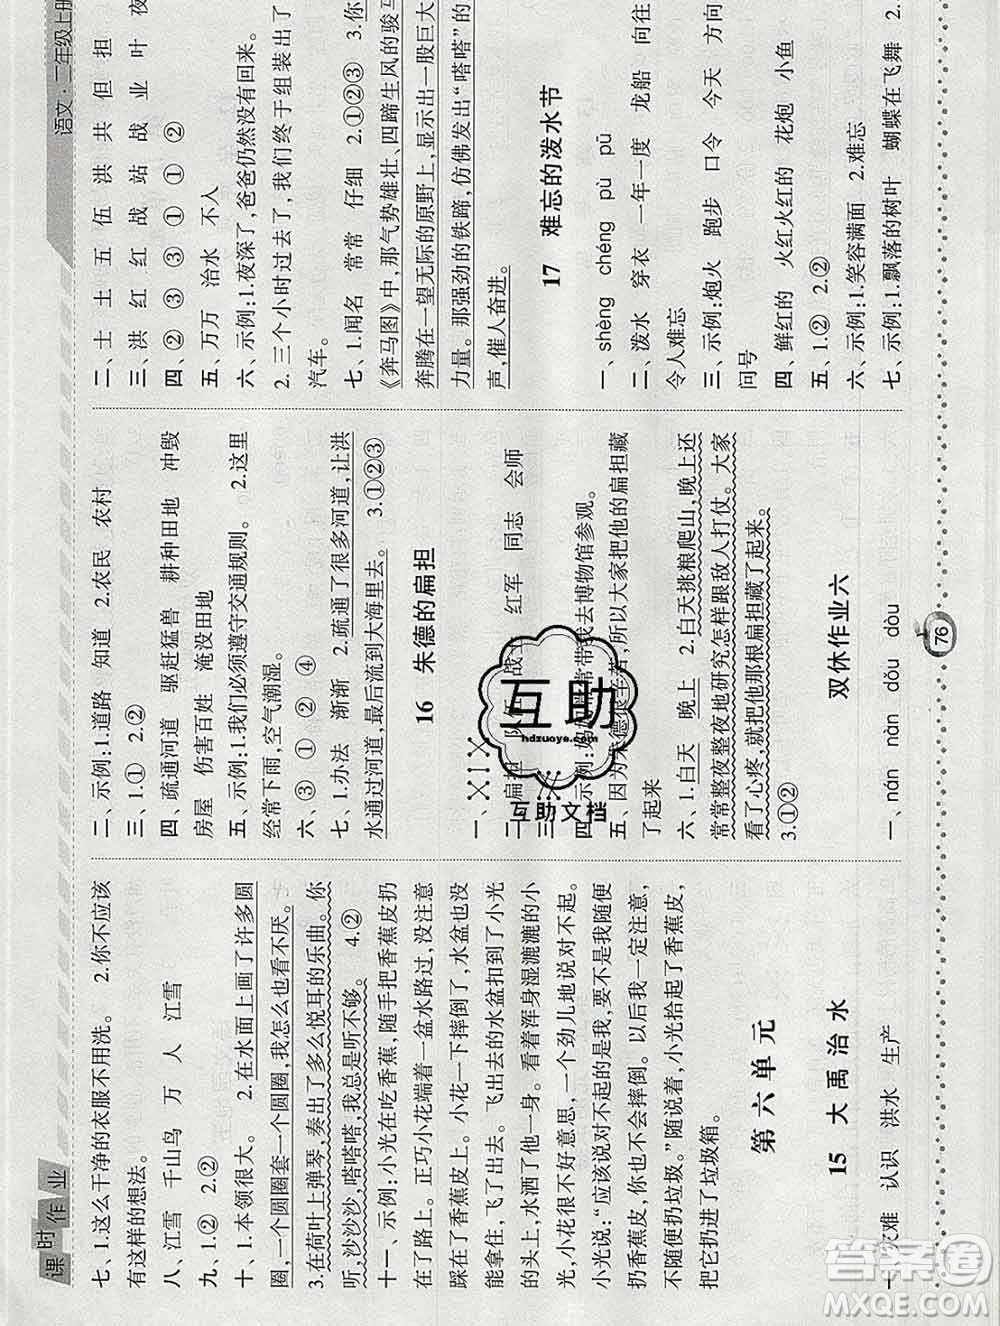 课时作业
七、1.这么干净的衣服不用洗。 2.你不应该
有这样的想法。
八、江雪 千山鸟 万 人 江雪
九、1.② 2.②
十、1.本领很大。 2.在水面上画了许多圆
圈,一个圆圈套一个圆圈,我怎么也看不厌。
3.在荷叶上弹琴,奏出了多么悦耳的乐曲。你
听,沙沙沙,嗒嗒嗒,我总是听不够。 4.②
十一、示例:小光在吃香蕉,随手把香蕉皮扔
在了路上。正巧小花端着一盆水路过,没注意
踩在了香蕉皮上。小花一下摔倒了,水盆也没
能拿住,飞了出去。飞出去的水盆扣到了小光
的头上,水洒了他一身。看着浑身湿漉漉的小
光,小花很不好意思,一个劲儿地说对不起。
小光说:“应该说对不起的是我,要不是我随便
扔香蕉皮,你也不会摔倒。以后我一定注意,
不随便扔垃圾。”随说着,小光拾起了香蕉皮,
把它扔进了垃圾箱。
第六单元
15 大禹治水
一、灾难 认识 洪水 生产
二、示例:1.道路 知道 2.农民 农村
三、1.① 2.②
四、疏通河道 驱赶猛兽 耕种田地 冲毁
房屋 伤害百姓 淹没田地
五、示例:1.我们必须遵守交通规则。 2.这里
经常下雨,空气潮湿。
六、③ ① ② ④
七、1.办法 渐渐 2.疏通了很多河道,让洪
水通过河道,最后流到大海里去。 3.①②③
16 朱德的扁担
一、
二、扁担 战士 红军 同志 会师
三、
四、示例:妈妈常常带我去博物馆参观。
五、因为朱德很辛苦,所以大家把他的扁担藏
了起来
六、1.白天 晚上 2.白天挑粮爬山,晚上还
常常整夜整夜地研究怎样跟敌人打仗。大家
看了心疼,就把他那根扁担藏了起来。
3.①②
双休作业六
一、nán nàn dǒu dòu
语文·二年级上册
二、土 土 五 伍 洪 共 但 担
三、洪 红 红 战 站 战 业 叶 夜
四、② ③ ③ ① ① ②
五、万万 治水 不入
六、示例:1.夜深了,爸爸仍然没有回来。
2.三个小时过去了,我们终于组装出了
汽车。
七、1.闻名 常常 仔细 2.①②③ 3.你
《奔马图》中,那气势雄壮、四蹄生风的骏马
奔腾在一望无际的原野上,显示出一股巨大
力量。那强劲的铁蹄,仿佛发出“嗒嗒”的
声,催人奋进。
17 难忘的泼水节
一、shèng chéng pù pū
二、泼水 穿衣 一年一度 龙船 向往
令人难忘
三、示例:炮火 跑步 口令 今天 方向
问号
四、鲜红的 火红火红的 花炮 小鱼
五、1.② 2.②
六、示例:1.笑容满面 2.难忘
七、示例:1.飘落的树叶 蝴蝶在飞舞 2.
76
互助
hdzuoye.com
互助文档
答案圈
MXQE.COM